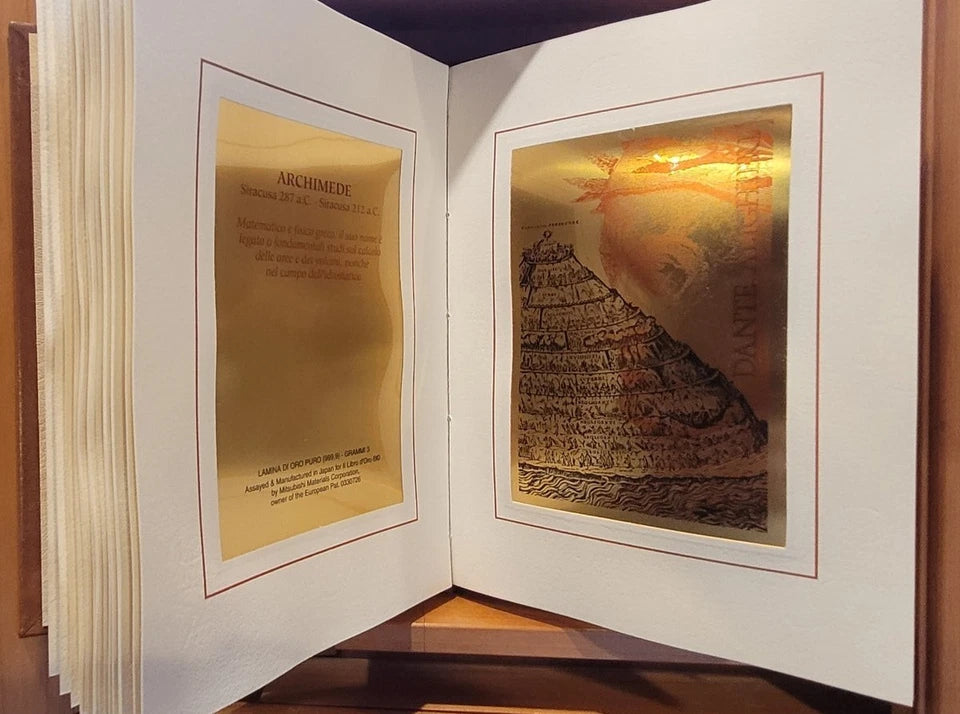 ARCHIMEDE
Siracusa 287 a.C. - Siracusa 212 a.C.
Matematico e fisico greco, il suo nome è
legato a fondamentali studi sul calcolo
delle aree e dei volumi, nonché
nel campo dell'idrostatica
LAMINA DI ORO PURO (999,9) - GRAMMI 3
Assayed & Manufactured in Japan for Il Libro d'Oro
by Mitsubishi Materials Corporation,
owner of the European Pat. 0330726
DANTE ALIGHIERI